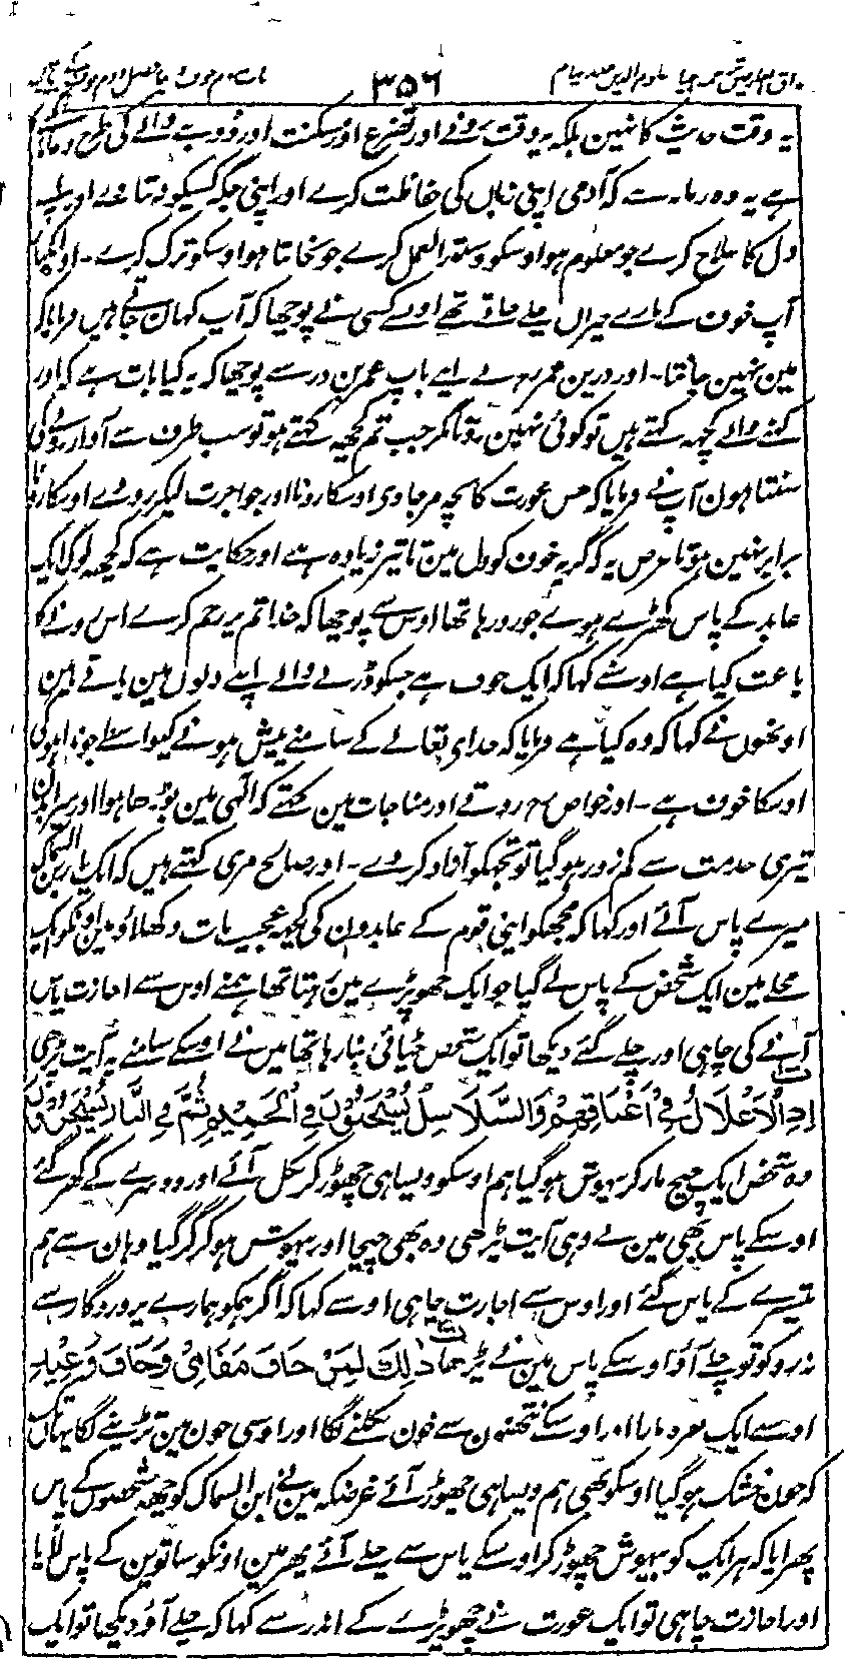 ۳۵۶
یہ وقت حدیث کا نہین بلکہ یہ وقت رونے اور تضرع اور مسکنت اور ڈوبنے والے کی طرح دعا
ہے یہ وہ زمانہ ہے کہ آدمی اپنی زبان کی حفاظت کرے اور اپنی جگہ کسیکو نہ بتاوے اور اپنے
دل کا علاج کرے جو معلوم ہو اوسکو دستور العمل کرے جو نجانتا ہو اوسکو ترک کرے۔
آپ خوف کے مارے حیران چلے جاتے تھے اونسے کسی نے پوچھا کہ آپ کہان جاتے ہین فرمایا کہ
مین نہین جانتا۔ اور ذر بن عمر نے اپنے باپ عمر بن ذر سے پوچھا کہ یہ کیا بات ہے کہ اور
کہنے والے کچھہ کہتے ہین تو کوئی نہین روتا مگر جب تم کچھہ کہتے ہو تو سب طرف سے آواز رونے کی
سنتا ہون آپ نے فرمایا کہ جس عورت کا بچہ مر جاوی اوسکا رونا اور جو اجرت لیکر روے اوسکا رونا
برابر نہین ہوتا غرض یہ کہ گریہ خوف کو دل مین تاثیر زیادہ ہے اور حکایت ہے کہ کچھہ لوگ ایک
عابد کے پاس کھڑے ہوے جو رو رہا تھا اوس سے پوچھا کہ خدا تم پر رحم کرے اس رونے کا
باعث کیا ہے اوسنے کہا کہ ایک خوف ہے جسکو ڈرنے والے اپنے دلون مین پاتے ہین
اونھون نے کہا کہ وہ کیا ہے فرمایا کہ خدای تعالے کے سامنے پیش ہونے کیواسطے جو ندا ہوگی
اوسکا خوف ہے۔ اور خواص رح روتے اور مناجات مین کہتے کہ الٰہی مین بوڑھا ہوا اور میرا بدن
تیری خدمت سے کمزور ہو گیا تو مجھکو آزاد کر دے۔ اور صالح مری کہتے ہین کہ ایک بار ابن السماک
میرے پاس آئے اور کہا کہ مجھکو اپنی قوم کے عابدون کی کچھہ عجیب بات دکھلاؤ مین اونکو ایک
محلے مین ایک شخص کے پاس لے گیا جو ایک جھونپڑے مین رہتا تھا ہمنے اوس سے اجازت پاس
آنے کی چاہی اور چلے گئے دیکھا تو ایک شخص چٹائی بنا رہا تھا مین نے اوسکے سامنے یہ آیت پڑھی
اِذِ الْاَغْلَالُ فِیْ اَعْنَاقِهِمْ وَالسَّلَاسِلُ یُسْحَبُوْنَ فِی الْحَمِیْمِ ثُمَّ فِی النَّارِ یُسْجَرُوْنَ
وہ شخص ایک چیخ مار کر بیہوش ہو گیا ہم اوسکو ویسا ہی چھوڑ کر نکل آئے اور دوسرے کے گھر گئے
اوسکے پاس بھی مین نے وہی آیت پڑھی وہ بھی چیخا اور بیہوش ہو کر گر گیا وہان سے ہم
تیسرے کے پاس گئے اور اوس سے اجازت چاہی اوسنے کہا کہ اگر ہمکو ہمارے پروردگار سے
نہ روکو تو چلے آؤ اوسکے پاس مین نے پڑھا ذٰلِكَ لِمَنْ خَافَ مَقَامِیْ وَخَافَ وَعِیْدِ
اوسنے ایک نعرہ مارا اور اوسکے نتھنون سے خون نکلنے لگا اور اوسی خون مین تڑپنے لگا یہانتک
کہ خون خشک ہو گیا اوسکو بھی ہم ویسا ہی چھوڑ آئے غرضکہ مین نے ابن السماک کو چھہ شخصون کے پاس
پھرایا کہ ہر ایک کو بیہوش چھوڑ کر اوسکے پاس سے چلے آئے پھر مین اونکو ساتوین کے پاس لایا
اور اجازت چاہی تو ایک عورت نے جھونپڑے کے اندر سے کہا کہ چلے آؤ دیکھا تو ایک